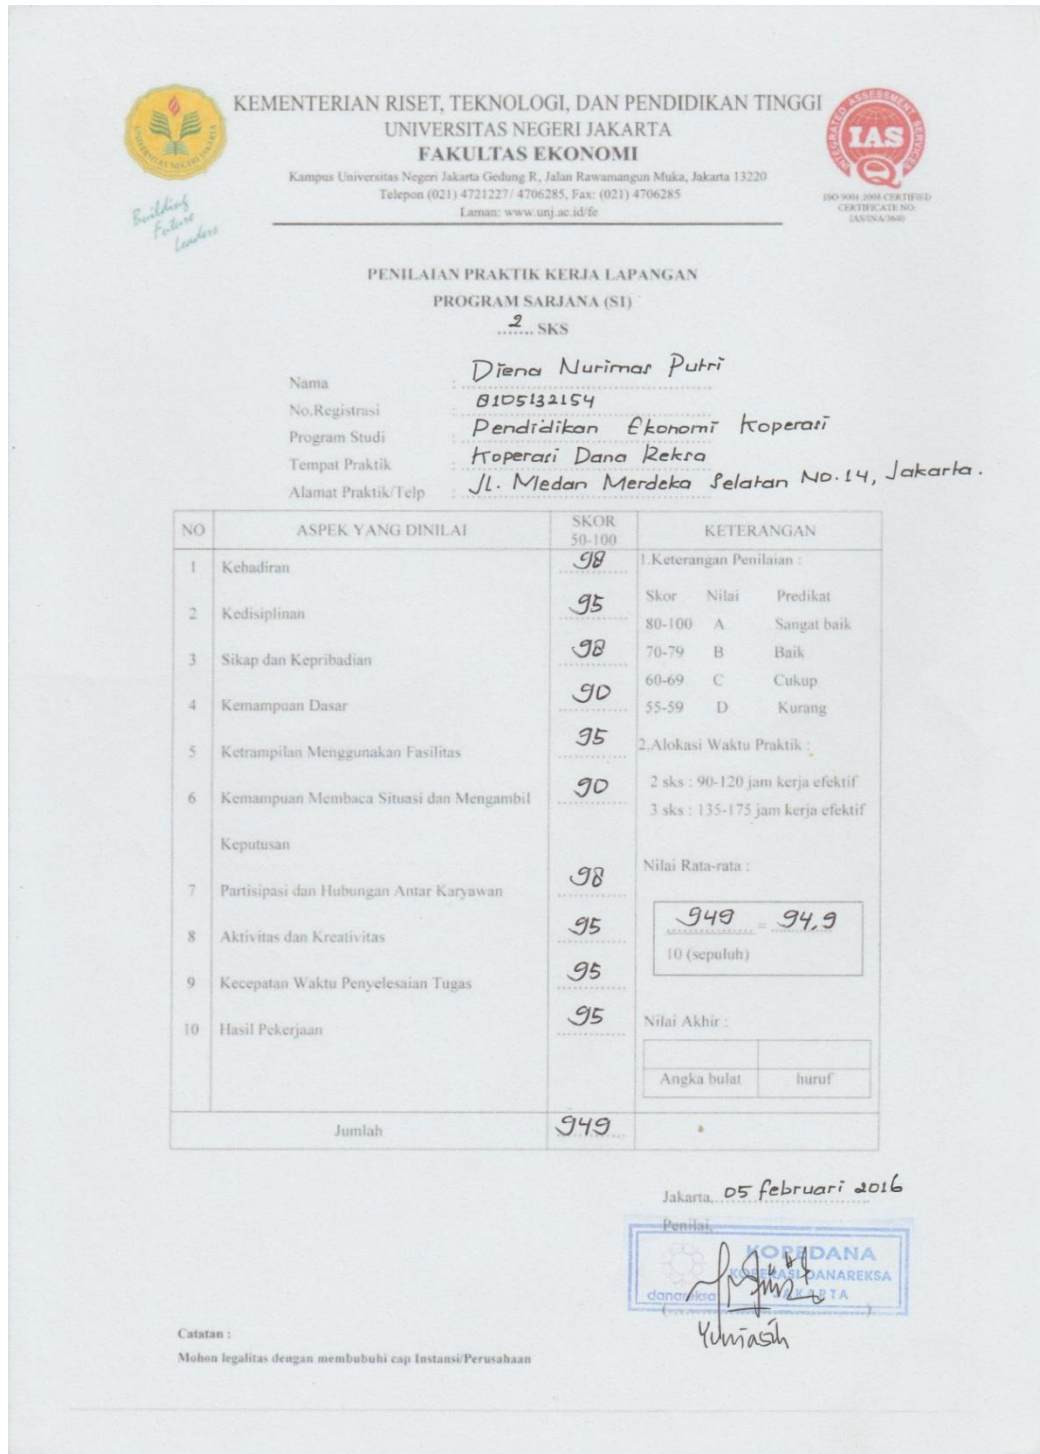 KEMENTERIAN RISET, TEKNOLOGI, DAN PENDIDIKAN TINGGI
UNIVERSITAS NEGERI JAKARTA
FAKULTAS EKONOMI
Kampus Universitas Negeri Jakarta Gedung R, Jalan Rawamangun Muka, Jakarta 13220
Telepon (021) 4721227/ 4706285, Fax: (021) 4706285
Laman: www.unj.ac.id/fe
UNIVERSITAS NEGERI JAKARTA
Building
Future
Leaders
INTEGRATED ASSESSMENT SERVICES
IAS
ISO 9001:2008 CERTIFIED
CERTIFICATE NO:
IAS/INA/3640
PENILAIAN PRAKTIK KERJA LAPANGAN
PROGRAM SARJANA (S1)
2 SKS
Nama : Diena Nurimas Putri
No.Registrasi : 8105132154
Program Studi : Pendidikan Ekonomi Koperasi
Tempat Praktik : Koperasi Dana Reksa
Alamat Praktik/Telp : Jl. Medan Merdeka Selatan No.14, Jakarta.
NO ASPEK YANG DINILAI SKOR 50-100 KETERANGAN
1 Kehadiran 98
2 Kedisiplinan 95
3 Sikap dan Kepribadian 98
4 Kemampuan Dasar 90
5 Ketrampilan Menggunakan Fasilitas 95
6 Kemampuan Membaca Situasi dan Mengambil 90
Keputusan
7 Partisipasi dan Hubungan Antar Karyawan 98
8 Aktivitas dan Kreativitas 95
9 Kecepatan Waktu Penyelesaian Tugas 95
10 Hasil Pekerjaan 95
Jumlah 949
1.Keterangan Penilaian :
Skor Nilai Predikat
80-100 A Sangat baik
70-79 B Baik
60-69 C Cukup
55-59 D Kurang
2.Alokasi Waktu Praktik :
2 sks : 90-120 jam kerja efektif
3 sks : 135-175 jam kerja efektif
Nilai Rata-rata :
949 = 94,9
10 (sepuluh)
Nilai Akhir :
Angka bulat huruf
Jakarta, 05 februari 2016
Penilai,
KOPEDANA
KOPERASI DANAREKSA
JAKARTA
danareksa
Yuniasih
Catatan :
Mohon legalitas dengan membubuhi cap Instansi/Perusahaan